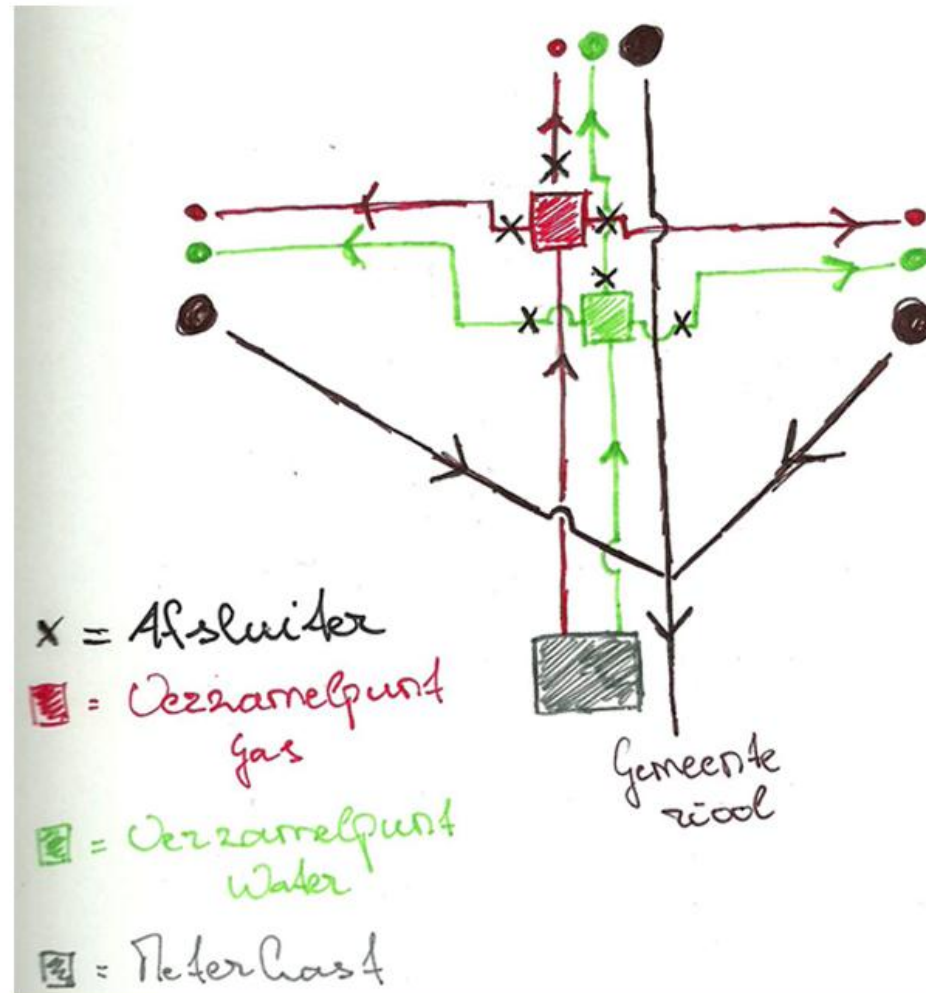 Gemeente
riool
x = Afsluiter
= Verzamelpunt
Gas
= Verzamelpunt
Water
= Meterkast